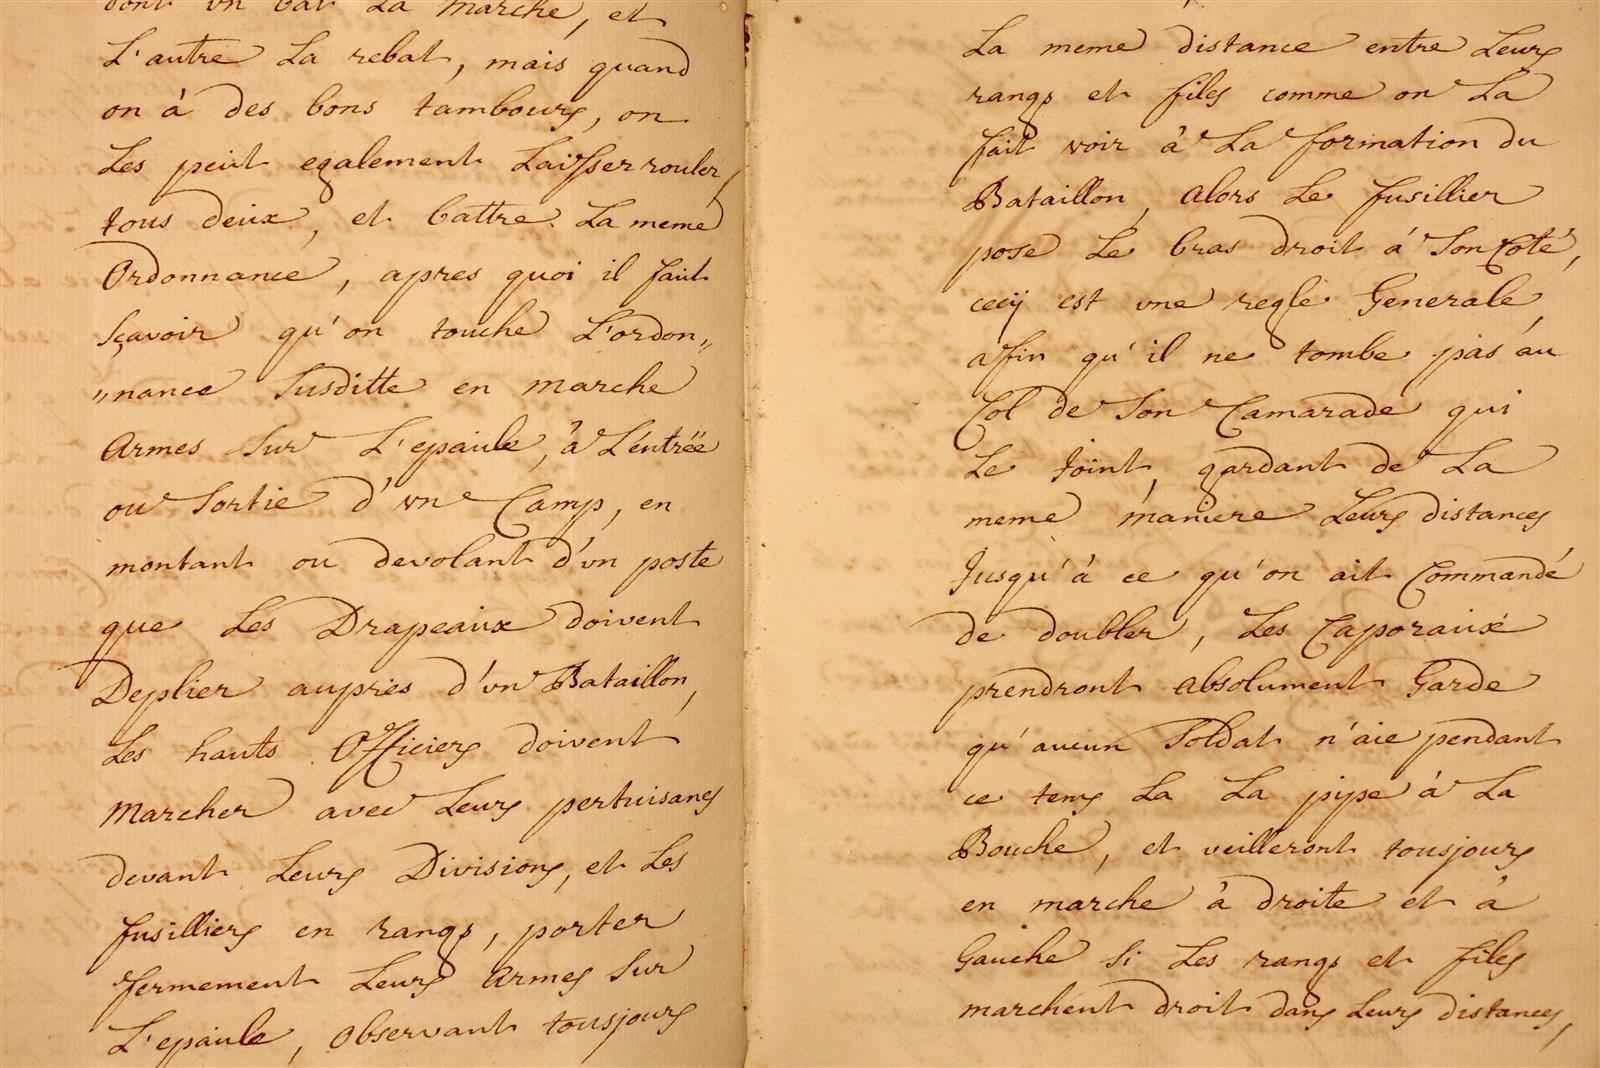 dont vn bat La marche, et
L'autre La rebat, mais quand
on à des bons tambours, on
Les peut egalement Laisser rouler
tous deux, et battre La meme
Ordonnance, apres quoi il faut
sçavoir qu'on touche L'ordon„
„nance Susditte en marche
Armes Sur L'epaule, à L'entrëe
ou Sortie d'vn Camp, en
montant ou devolant d'vn poste
que Les Drapeaux doivent
Deplier aupries d'vn Bataillon,
Les hauts Officiers doivent
Marcher avec Leurs pertuisanes
devant Leurs Divisions, et Les
fusilliers en rangs, porter
fermement Leurs Armes Sur
L'epaule, Observant tousjours
La meme distance entre Leurs
rangs et files comme on La
fait voir à La formation du
Bataillon, Alors Le fusillier
pose Le bras droit à Son Coté,
cecÿ est vne regle Generale,
afin qu'il ne tombe pas au
Col de Son Camarade qui
Le Joint, gardant de La
meme maniere Leurs distances
Jusqu'à ce qu'on ait Commandé
de doubler, Les Caporaux
prendront Absolument Garde
qu'aucun Soldat n'aie pendant
ce tems La La pipe à La
Bouche, et veilleront tousjours
en marche à droite et à
Gauche Si Les rangs et files
marchent droit dans Leurs distances,